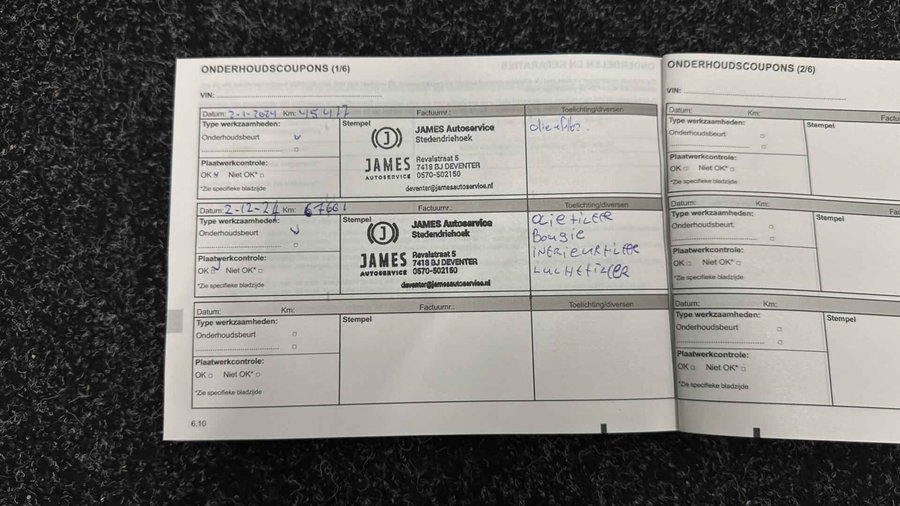 ONDERHOUDSCOUPONS (1/6)
VIN:
Datum: 2-1-2024 Km: 45417 Factuurnr.: Toelichting/diversen
Type werkzaamheden:
Onderhoudsbeurt
Plaatwerkcontrole:
OK Niet OK*
*Zie specifieke bladzijde
Stempel
JAMES Autoservice
Stedendriehoek
JAMES
AUTOSERVICE
Revalstraat 5
7418 BJ DEVENTER
0570-502150
deventer@jamesautoservice.nl
Datum: 2-12-24 Km: Factuurnr.: Toelichting/diversen
Type werkzaamheden:
Onderhoudsbeurt
Plaatwerkcontrole:
OK Niet OK*
*Zie specifieke bladzijde
Stempel
JAMES Autoservice
Stedendriehoek
JAMES
AUTOSERVICE
Revalstraat 5
7418 BJ DEVENTER
0570-502150
deventer@jamesautoservice.nl
OLIEFILTER
Bougie
INTERIEURFILTER
LUCHTFILTER
Datum: Km: Factuurnr.: Toelichting/diversen
Type werkzaamheden:
Onderhoudsbeurt
Plaatwerkcontrole:
OK Niet OK*
*Zie specifieke bladzijde
Stempel
6.10
ONDERHOUDSCOUPONS (2/6)
VIN:
Datum: Km:
Type werkzaamheden:
Onderhoudsbeurt
Plaatwerkcontrole:
OK Niet OK*
*Zie specifieke bladzijde
Stempel
Datum: Km:
Type werkzaamheden:
Onderhoudsbeurt
Plaatwerkcontrole:
OK Niet OK*
*Zie specifieke bladzijde
Stempel
Datum: Km:
Type werkzaamheden:
Onderhoudsbeurt
Plaatwerkcontrole:
OK Niet OK*
*Zie specifieke bladzijde
Stempel